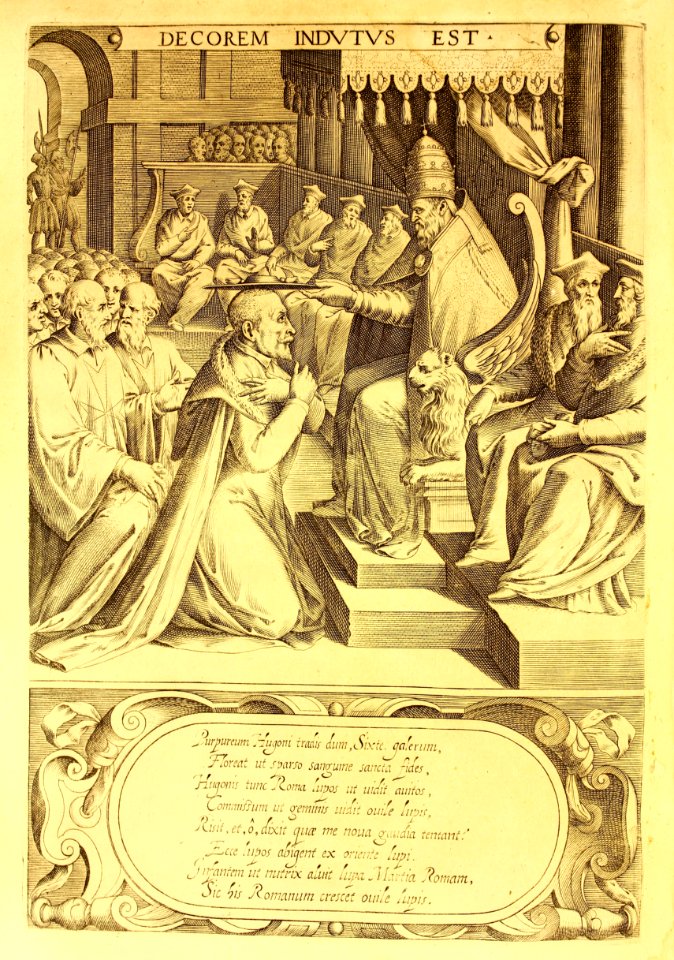 DECOREM INDVTVS EST.
Purpureum Hugoni tradis dum, Sixte, galerum,
Floreat ut sparso sanguine sancta fides,
Hugonis tunc Roma lupos ut vidit auitos,
Commissum ut geminis vidit ouile lupis,
Risit, et, ô, dixit quæ me noua gaudia tentant?
Ecce lupos abigent ex oriente lupi.
Infantem ut nutrix aluit lupa Martia Romam,
Sic his Romanum crescet ouile lupis.